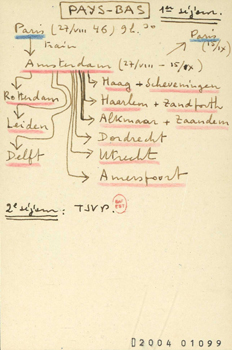 PAYS-BAS
1er séjour.
Paris (27/VIII 46) 9h.30
Paris
(15/IX)
train
Amsterdam (27/VIII - 15/IX)
Haag + Scheveningen
Rotterdam
Haarlem + Zandforth
Leiden
Alkmaar + Zaandem
Delft
Dordrecht
Utrecht
Amersfoort
2e séjour: TSVP.
2004 01099